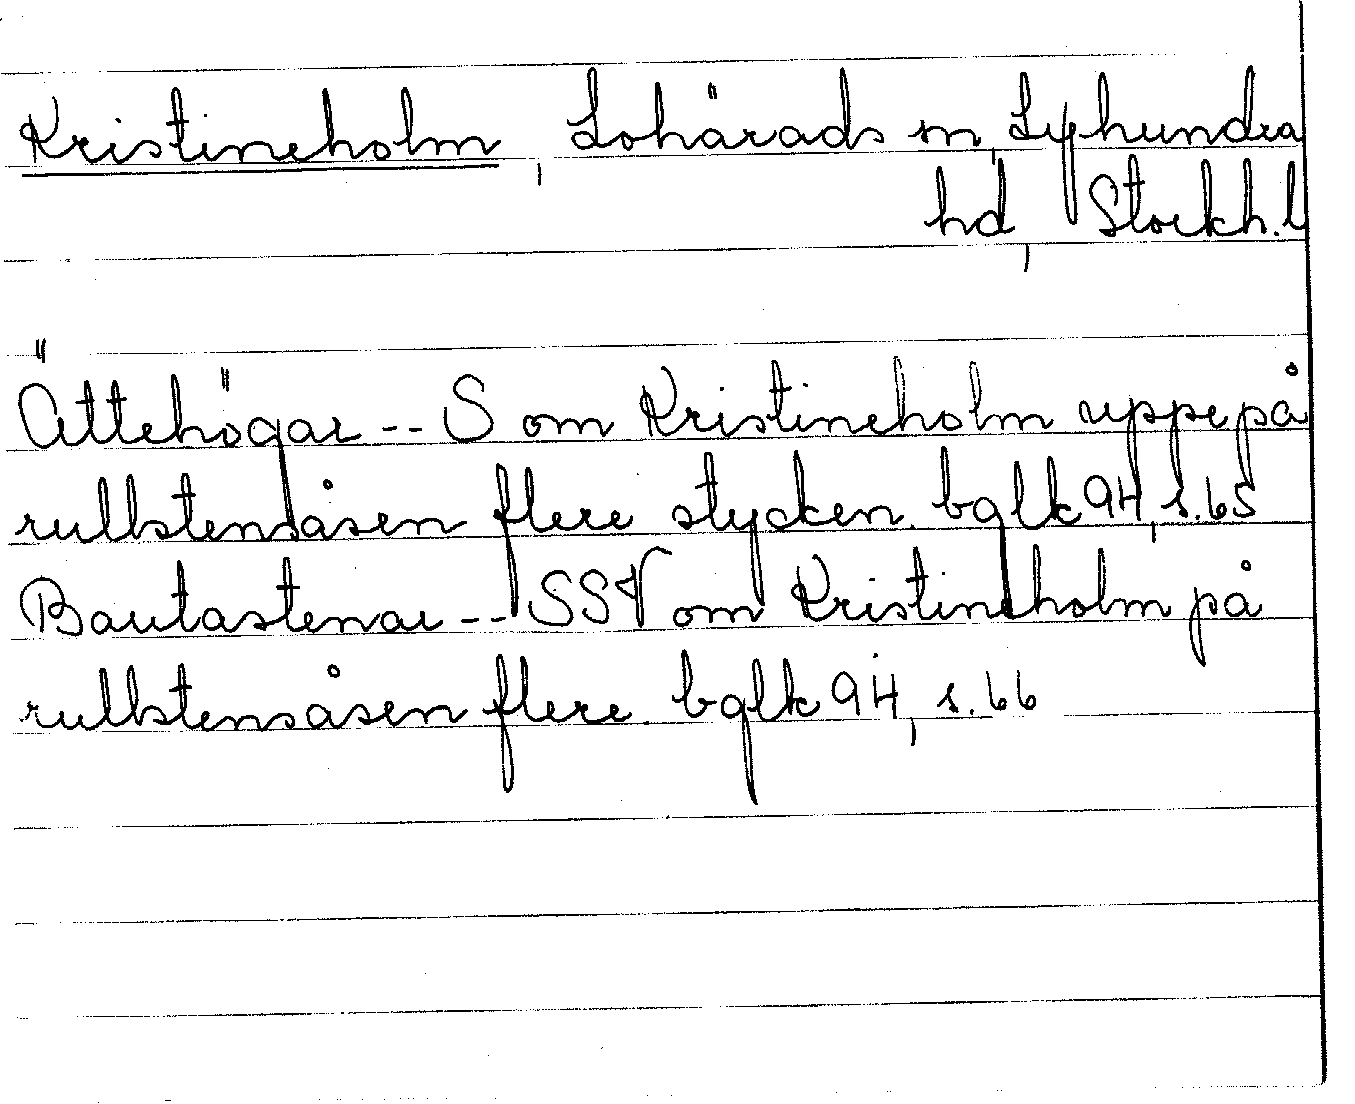 Kristineholm, Lohärads sn, Lyhundra
hd, Stockh. l
Ättehögar -- S om Kristineholm uppe på
rullstensåsen flere stycken. bglk 94, s. 65
Bautastenar -- SSV om Kristineholm på
rullstensåsen flere. bglk 94, s. 66